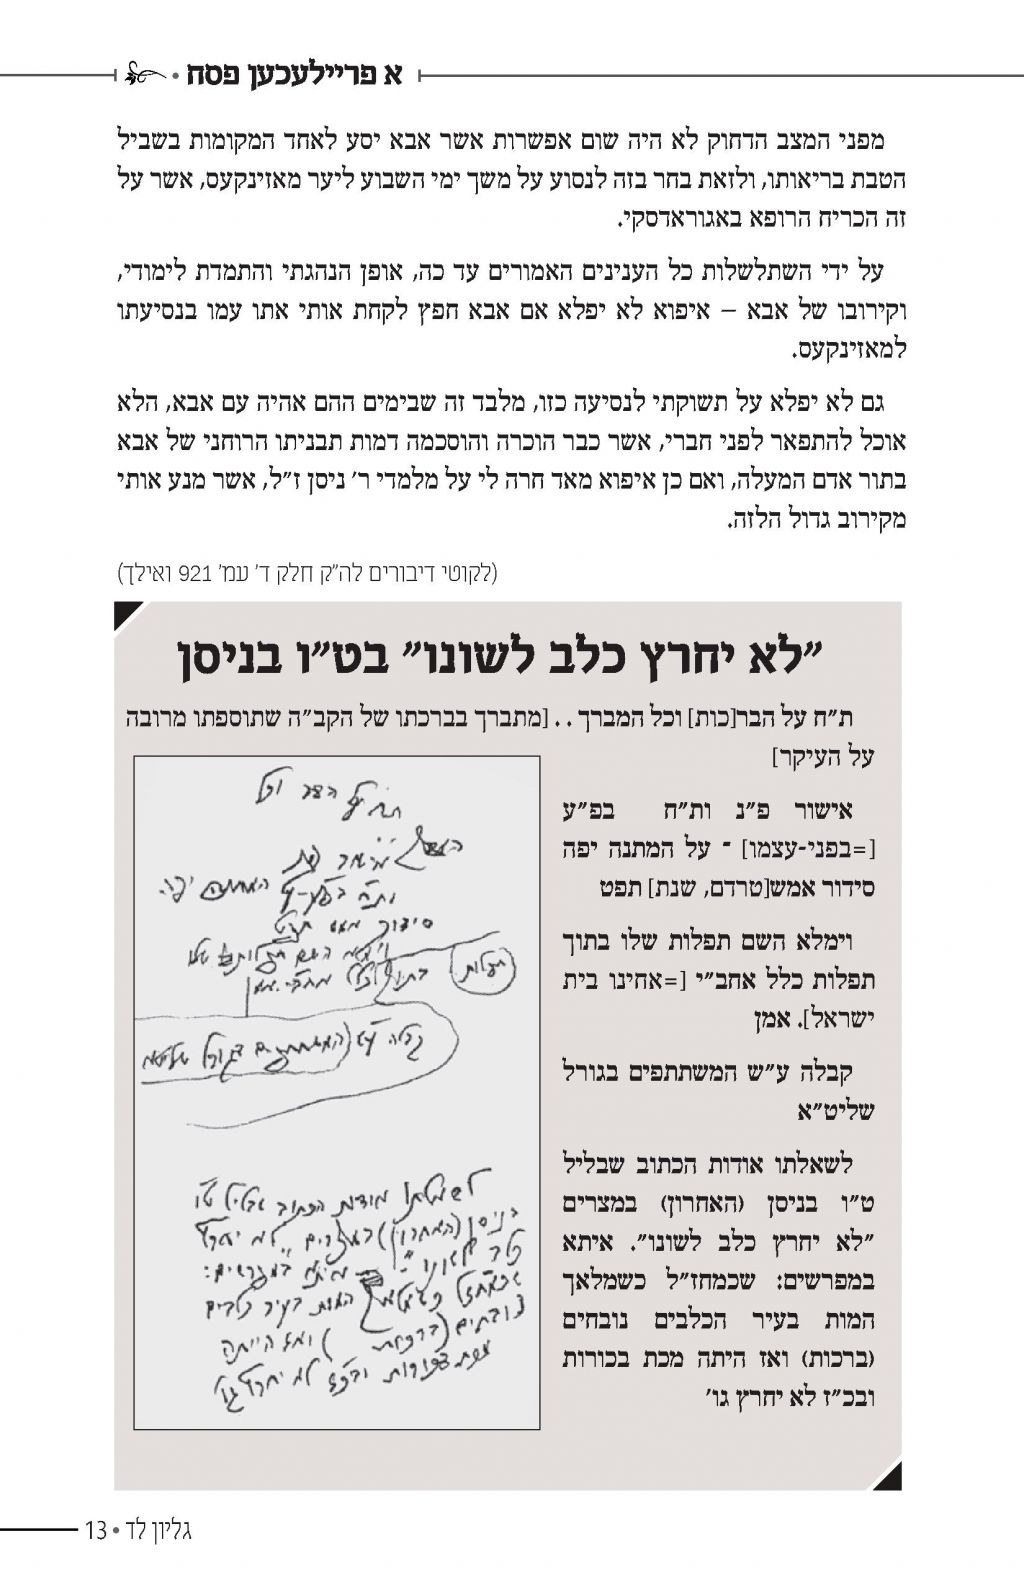 א פריילעכען פסח •
מפני המצב הדחוק לא היה שום אפשרות אשר אבא יסע לאחד המקומות בשביל
הטבת בריאותו, ולזאת בחר בזה לנסוע על משך ימי השבוע ליער מאזינקעס, אשר על
זה הכריח הרופא באגוראדסקי.
על ידי השתלשלות כל הענינים האמורים עד כה, אופן הנהגתי והתמדת לימודי,
וקירובו של אבא – איפוא לא יפלא אם אבא חפץ לקחת אותי אתו עמו בנסיעתו
למאזינקעס.
גם לא יפלא על תשוקתי לנסיעה כזו, מלבד זה שבימים ההם אהיה עם אבא, הלא
אוכל להתפאר לפני חברי, אשר כבר הוכרה והוסכמה דמות תבניתו הרוחני של אבא
בתור אדם המעלה, ואם כן איפוא מאד חרה לי על מלמדי ר' ניסן ז"ל, אשר מנע אותי
מקירוב גדול הלזה.
(לקוטי דיבורים לה"ק חלק ד' עמ' 921 ואילך)
"לא יחרץ כלב לשונו" בט"ו בניסן
ת"ח על הבר[כות] וכל המברך . . [מתברך בברכתו של הקב"ה שתוספתו מרובה
על העיקר]
אישור פ"נ ות"ח בפ"ע
[=בפני-עצמו] - על המתנה יפה
סידור אמש[טרדם, שנת] תפט
וימלא השם תפלות שלו בתוך
תפלות כלל אחב"י [=אחינו בית
ישראל]. אמן
קבלה ע"ש המשתתפים בגורל
שליט"א
לשאלתו אודות הכתוב שבליל
ט"ו בניסן (האחרון) במצרים
"לא יחרץ כלב לשונו". איתא
במפרשים: שכמחז"ל כשמלאך
המות בעיר הכלבים נובחים
(ברכות) ואז היתה מכת בכורות
ובכ"ז לא יחרץ גו'
לשאלתו אודות הכתוב שבליל ט"ו
בניסן (האחרון) במצרים "לא יחרץ
כלב לשונו" איתא במפרשים:
שכמחז"ל כשמלאך המות בעיר כלבים
נובחים (ברכות) ואז הייתה
מכת בכורות ובכ"ז לא יחרץ גו'
גליון לד • 13